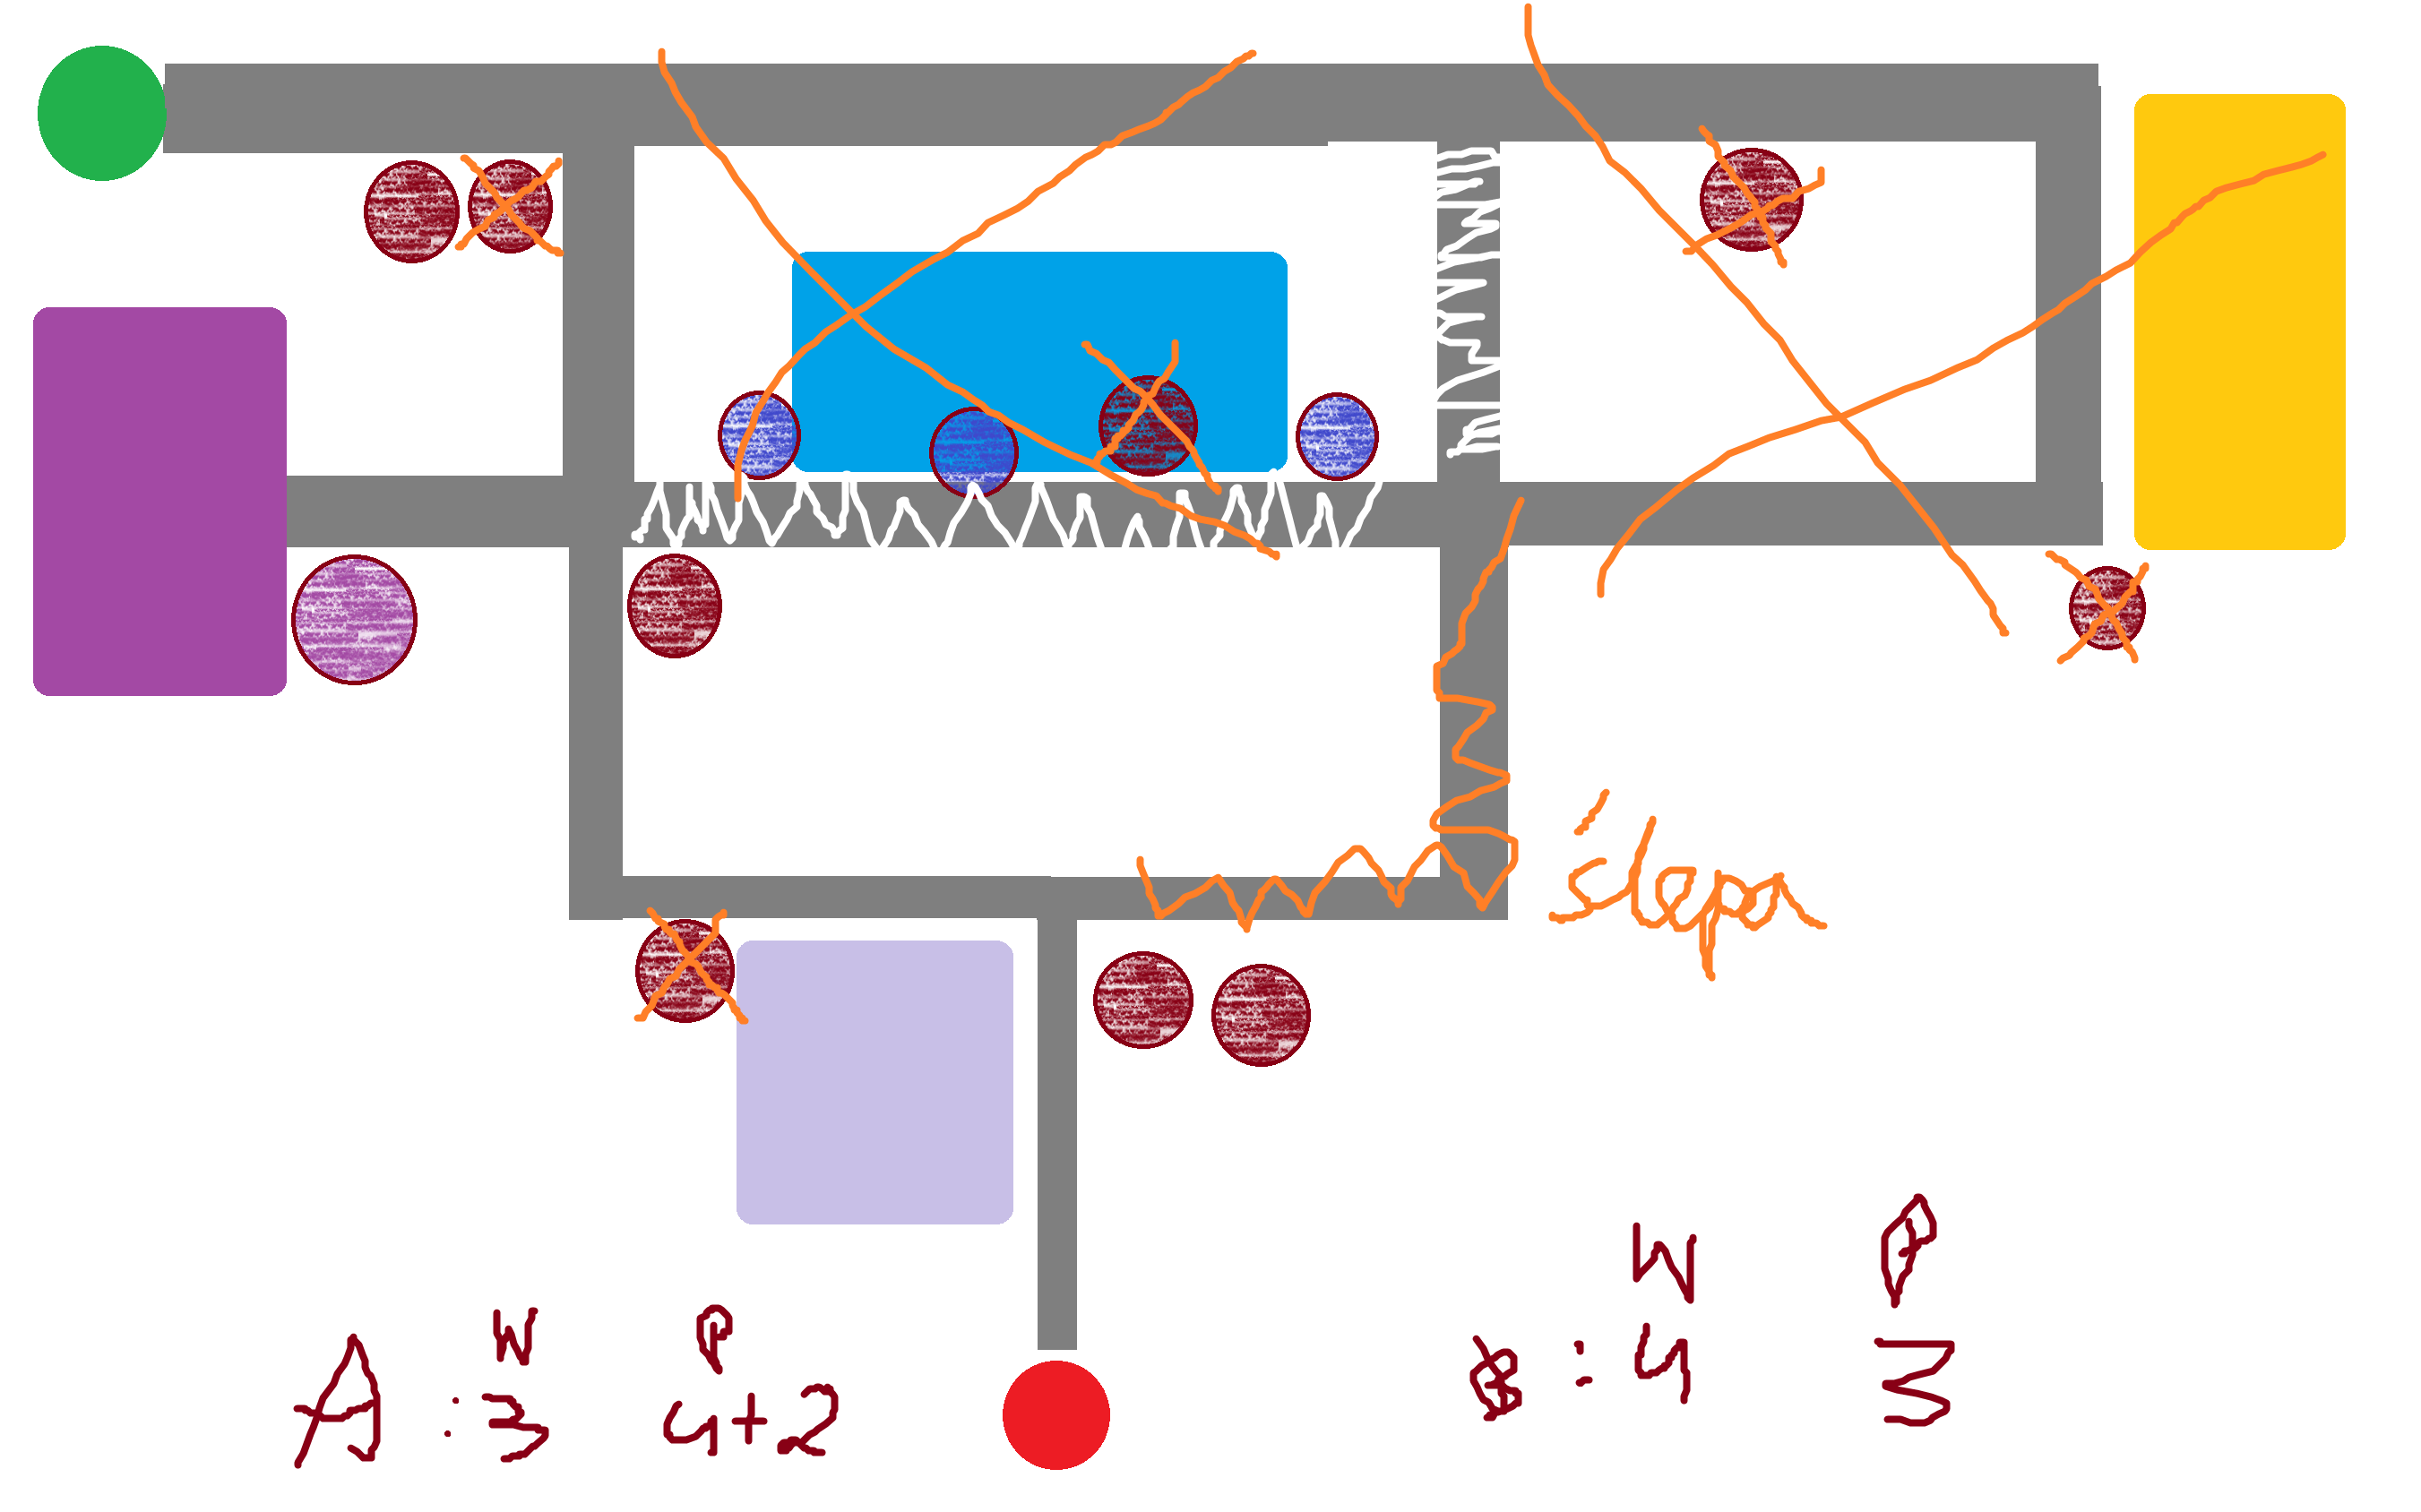 slop
W P
A : 3 4+2
W P
B : 4 3